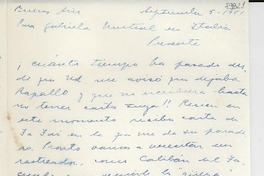 Buenos Aires Septiembre 5-1951
Para Gabriela Mistral en Italia
Presente
¡ Cuánto tiempo ha pasado des-
de que Ud me avisó que dejaba
Rapallo y que no escribiera hasta
no tener carta suya!! Recién en
este momento recibo carta de
Fa Fai en la que me da su parade-
ro. Pronto vamos a necesitar un
rastreador, como Calibán del Fa-